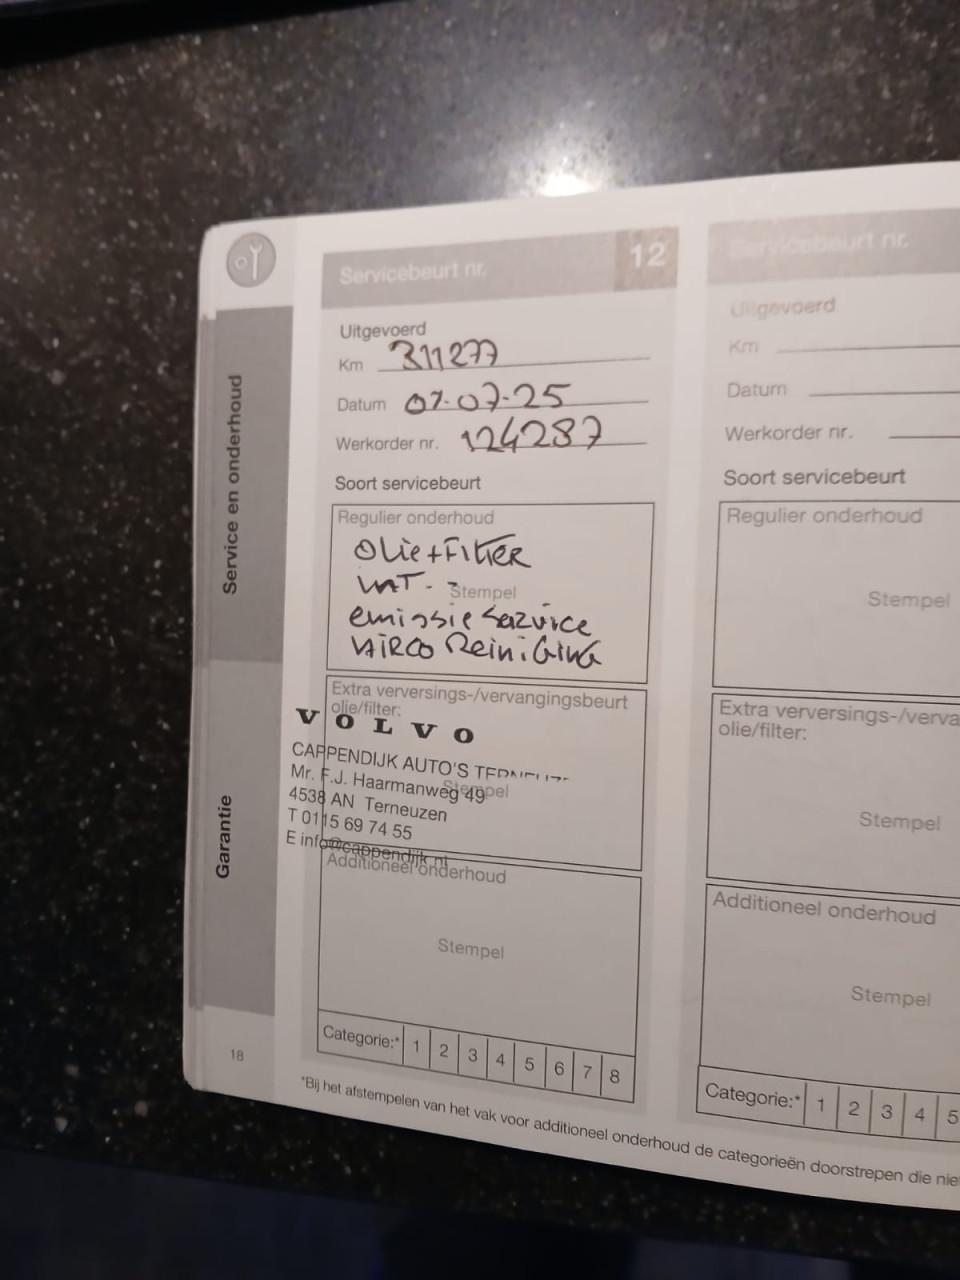 Servicebeurt nr. 12
Uitgevoerd
Km 311277
Datum 07-07-25
Werkorder nr. 124287
Soort servicebeurt
Regulier onderhoud
Olie + Filter
Stempel
emissie service
AIRCO Reiniging
Extra verversings-/vervangingsbeurt
olie/filter:
VOLVO
CAPPENDIJK AUTO'S TERNEUZEN
Mr. F.J. Haarmanweg 49
Stempel
4538 AN Terneuzen
T 0115 69 74 55
E info@cappendijk.nl
Additioneel onderhoud
Stempel
Categorie:* 1 2 3 4 5 6 7 8
Servicebeurt nr.
Uitgevoerd
Km
Datum
Werkorder nr.
Soort servicebeurt
Regulier onderhoud
Stempel
Extra verversings-/verva
olie/filter:
Stempel
Additioneel onderhoud
Stempel
Categorie:* 1 2 3 4 5
*Bij het afstempelen van het vak voor additioneel onderhoud de categorieën doorstrepen die nie
Service en onderhoud
Garantie
18